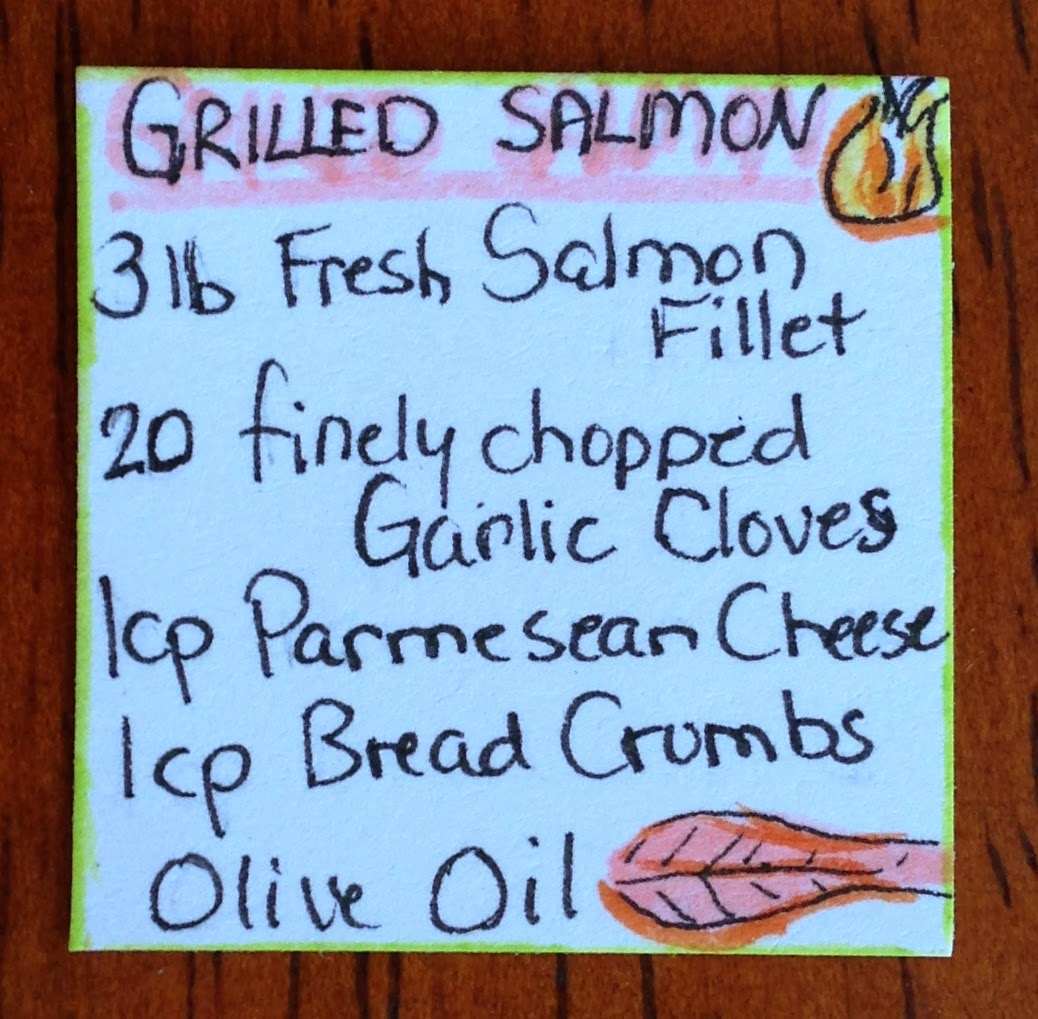 GRILLED SALMON
3 lb Fresh Salmon
Fillet
20 finely chopped
Garlic Cloves
1cp Parmesean Cheese
1cp Bread Crumbs
Olive Oil